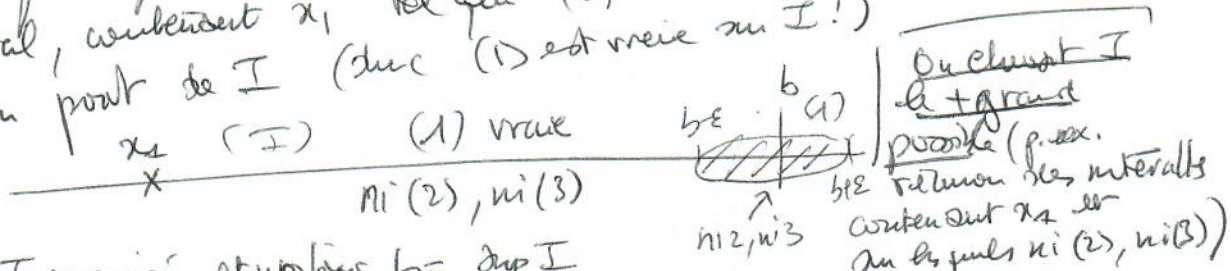 al, contenant x₁
un point de I (donc (1) est vraie sur I!)
x₁ (I) (1) vraie
ni (2), ni (3)
b-ε b (1)
b+ε
ni 2, ni 3
On choisit I
le + grand
possible (p. ex.
réunion des intervalles
contenant x₁ et
sur lesquels ni (2), ni (3))
I sup I